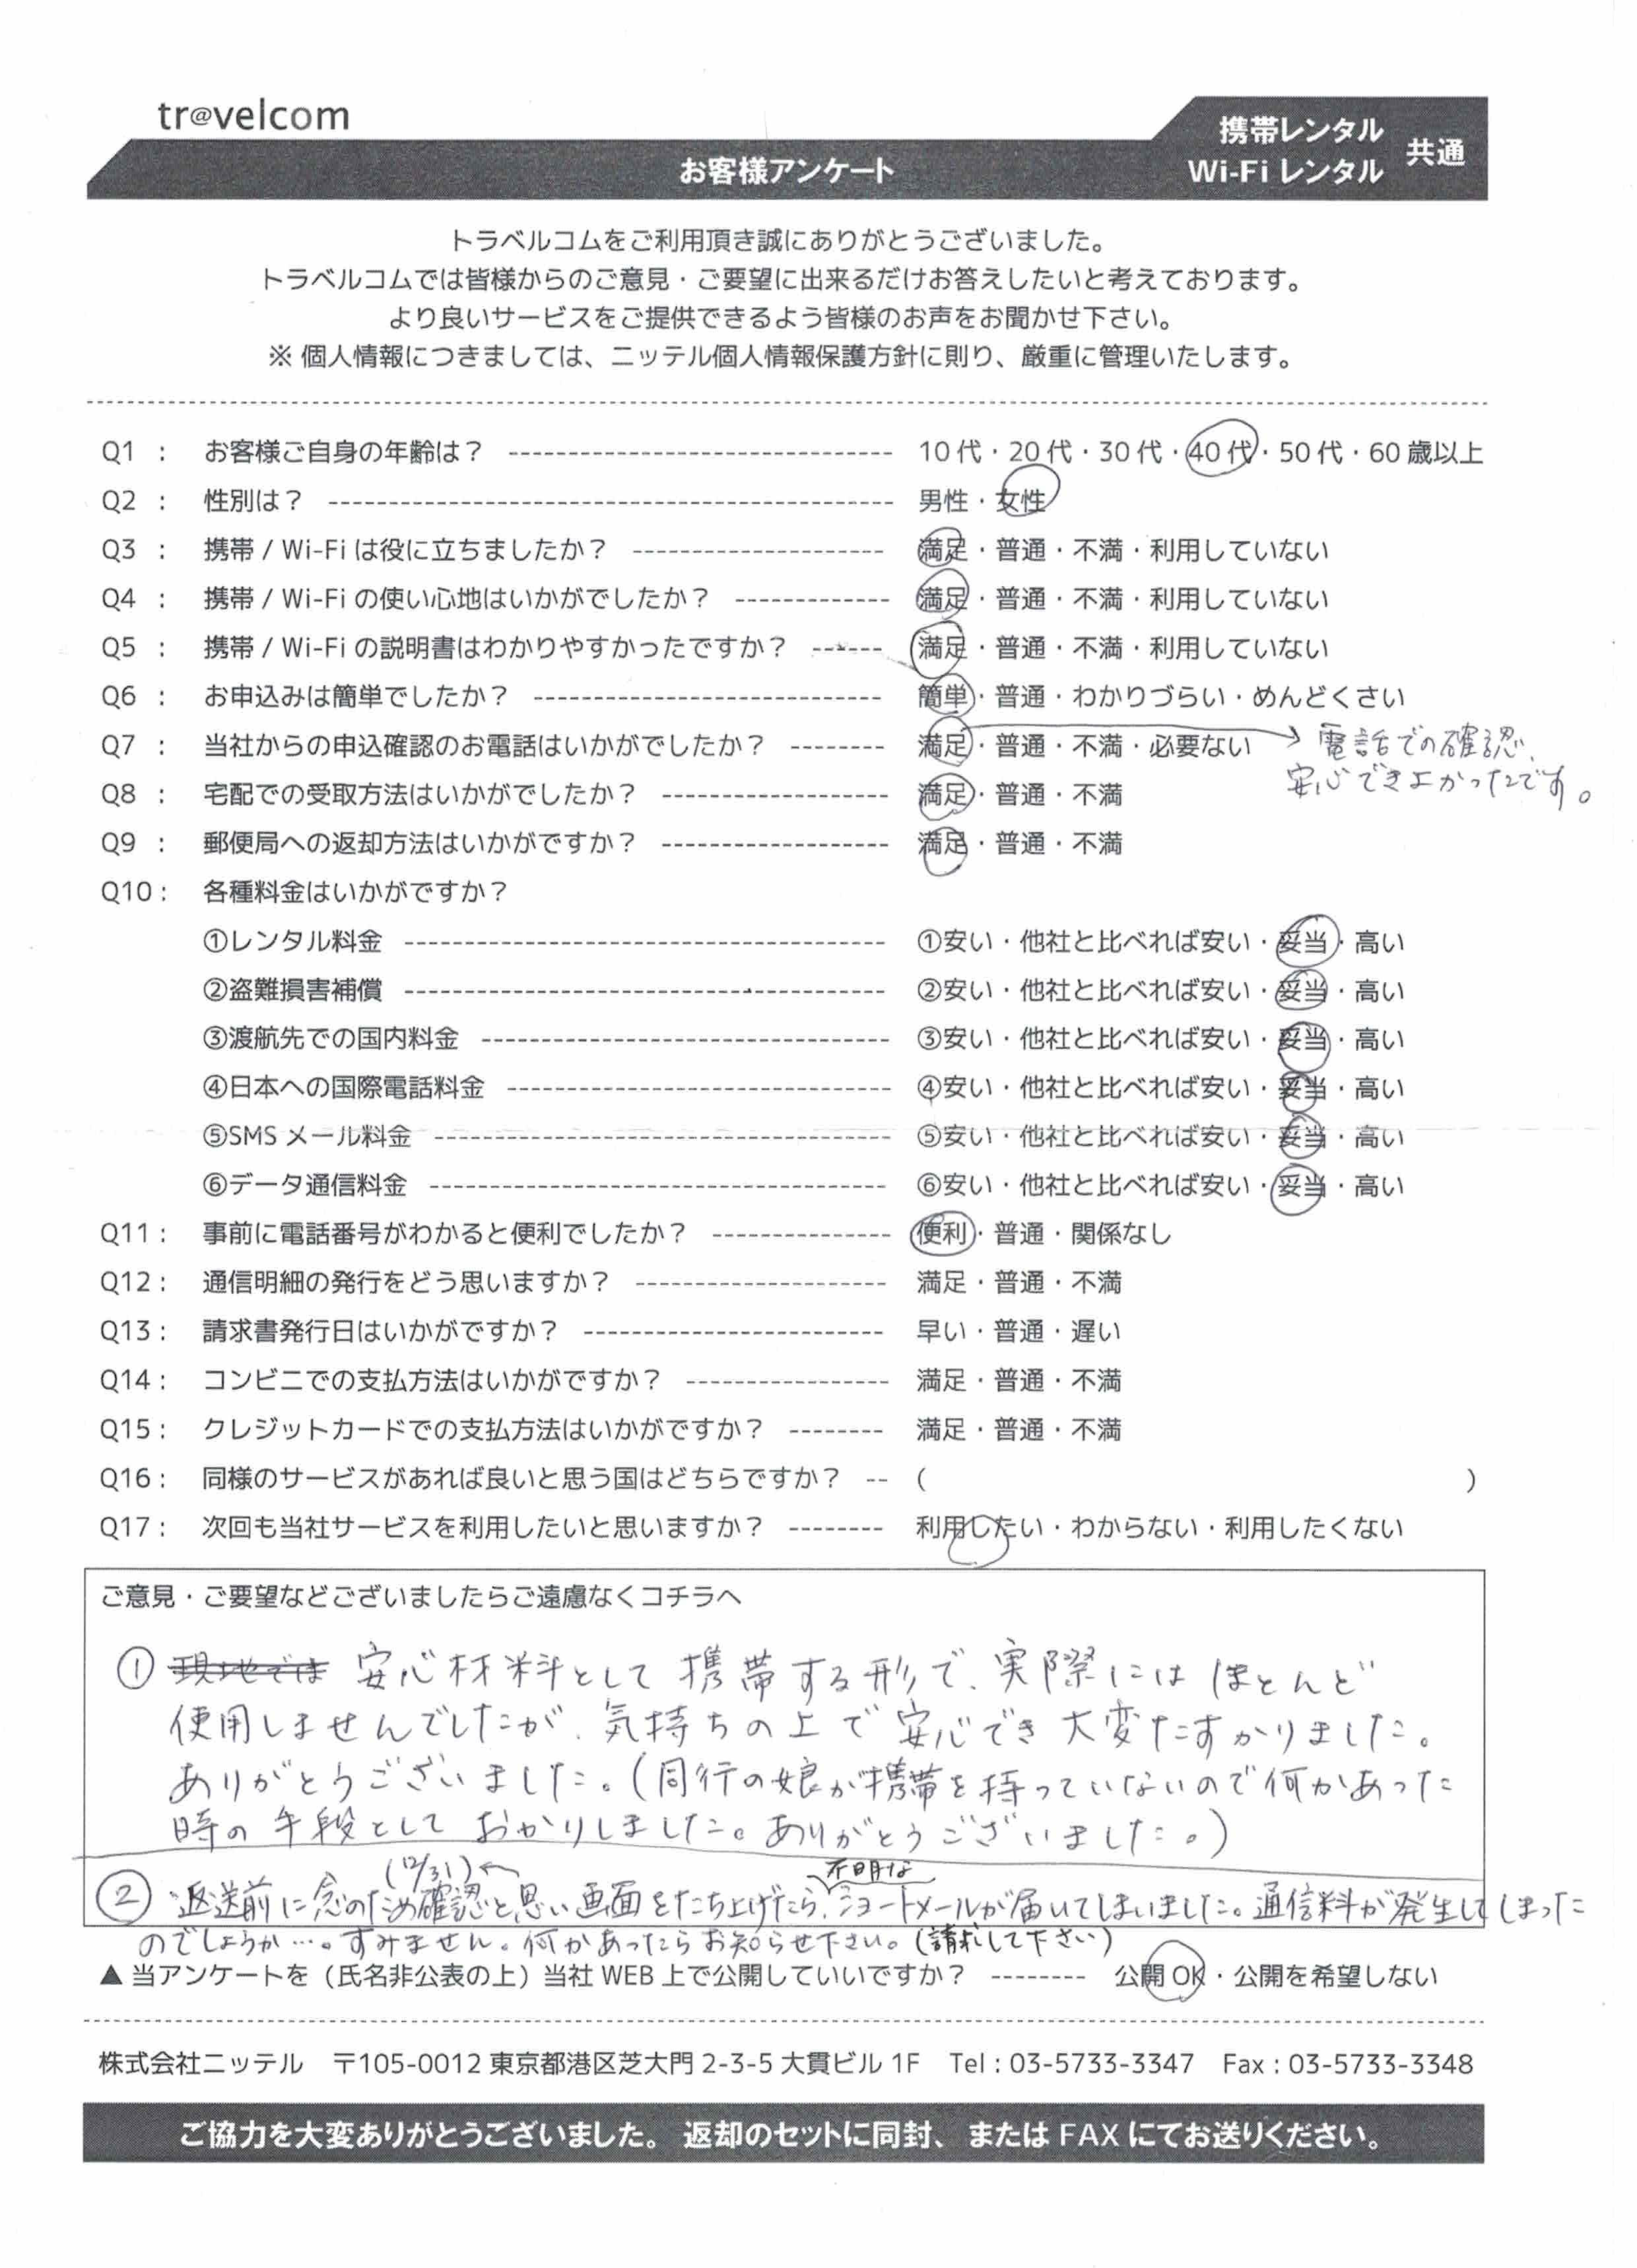 tr@velcom
お客様アンケート
携帯レンタル
Wi-Fi レンタル
共通
トラベルコムをご利用頂き誠にありがとうございました。
トラベルコムでは皆様からのご意見・ご要望に出来るだけお答えしたいと考えております。
より良いサービスをご提供できるよう皆様のお声をお聞かせ下さい。
※ 個人情報につきましては、ニッテル個人情報保護方針に則り、厳重に管理いたします。
Q1 : お客様ご自身の年齢は? 10 代・20 代・30 代・40 代・50 代・60 歳以上
Q2 : 性別は? 男性・女性
Q3 : 携帯 / Wi-Fi は役に立ちましたか? 満足・普通・不満・利用していない
Q4 : 携帯 / Wi-Fi の使い心地はいかがでしたか? 満足・普通・不満・利用していない
Q5 : 携帯 / Wi-Fi の説明書はわかりやすかったですか? 満足・普通・不満・利用していない
Q6 : お申込みは簡単でしたか? 簡単・普通・わかりづらい・めんどくさい
Q7 : 当社からの申込確認のお電話はいかがでしたか? 満足・普通・不満・必要ない → 電話での確認、
安心できよかったです。
Q8 : 宅配での受取方法はいかがでしたか? 満足・普通・不満
Q9 : 郵便局への返却方法はいかがですか? 満足・普通・不満
Q10 : 各種料金はいかがですか?
①レンタル料金 ①安い・他社と比べれば安い・妥当・高い
②盗難損害補償 ②安い・他社と比べれば安い・妥当・高い
③渡航先での国内料金 ③安い・他社と比べれば安い・妥当・高い
④日本への国際電話料金 ④安い・他社と比べれば安い・妥当・高い
⑤SMS メール料金 ⑤安い・他社と比べれば安い・妥当・高い
⑥データ通信料金 ⑥安い・他社と比べれば安い・妥当・高い
Q11 : 事前に電話番号がわかると便利でしたか? 便利・普通・関係なし
Q12 : 通信明細の発行をどう思いますか? 満足・普通・不満
Q13 : 請求書発行日はいかがですか? 早い・普通・遅い
Q14 : コンビニでの支払方法はいかがですか? 満足・普通・不満
Q15 : クレジットカードでの支払方法はいかがですか? 満足・普通・不満
Q16 : 同様のサービスがあれば良いと思う国はどちらですか? ( )
Q17 : 次回も当社サービスを利用したいと思いますか? 利用したい・わからない・利用したくない
ご意見・ご要望などございましたらご遠慮なくコチラへ
① 現地では 安心材料として携帯する形で、実際にはほとんど
使用しませんでしたが、気持ちの上で安心でき大変たすかりました。
ありがとうございました。(同行の娘が携帯を持っていないので何かあった
時の手段としておかりしました。ありがとうございました。)
(12/31) ← 不明な
② 返送前に念のため確認と思い画面をたち上げたら、ショートメールが届いてしまいました。通信料が発生してしまった
のでしょうか…。すみません。何かあったらお知らせ下さい。(請求して下さい)
▲ 当アンケートを(氏名非公表の上)当社 WEB 上で公開していいですか? 公開 OK・公開を希望しない
株式会社ニッテル 〒105-0012 東京都港区芝大門 2-3-5 大貫ビル 1F Tel : 03-5733-3347 Fax : 03-5733-3348
ご協力を大変ありがとうございました。 返却のセットに同封、または FAX にてお送りください。